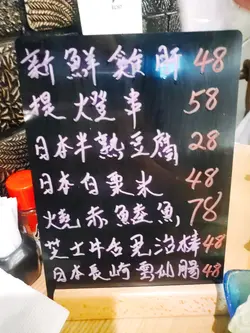 新鮮雞肝 48
提燈串 58
日本半熟豆腐 28
日本白粟米 48
燒赤鯥魚 78
芝士牛舌冶棒 48
日本長崎雲仙腸 48